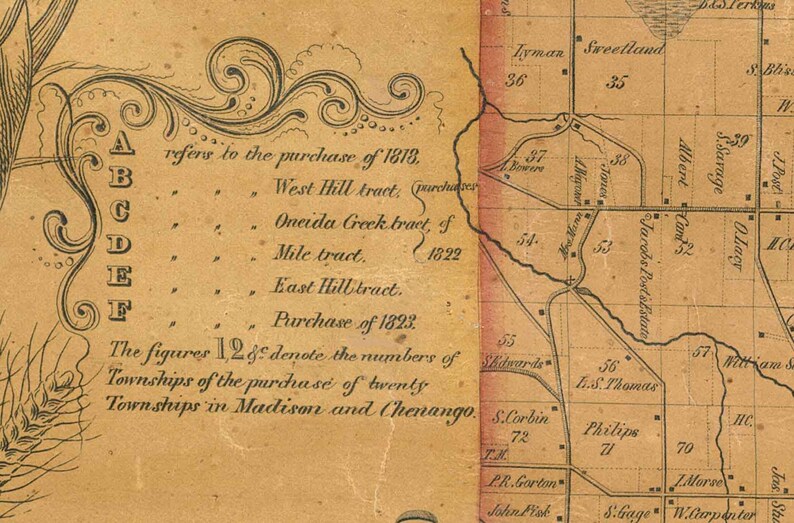 A refers to the purchase of 1818.
B " " " West Hill tract, (purchases
C " " " Oneida Creek tract, of
D " " " Mile tract. 1822
E " " " East Hill tract.
F " " " Purchase of 1823.
The figures 1,2 &c denote the numbers of
Townships of the purchase of twenty
Townships in Madison and Chenango.
B&S. Perkins
Lyman Sweetland
36 35
S. Bliss
W.
37 38 39
Bowers
Jones
Albert
S. Savage
J. Post
54 53 52
Mrs. Mann
Jacob Post's Estate
O. Lacy
H.C.
55 57
S. Edwards 56
William S
L.S. Thomas
S. Corbin
72 Philips
71 70
H.C.
T.M.
P.R. Gorton I. Morse
Jas. Sha
John Fisk S. Gage W. Carpenter